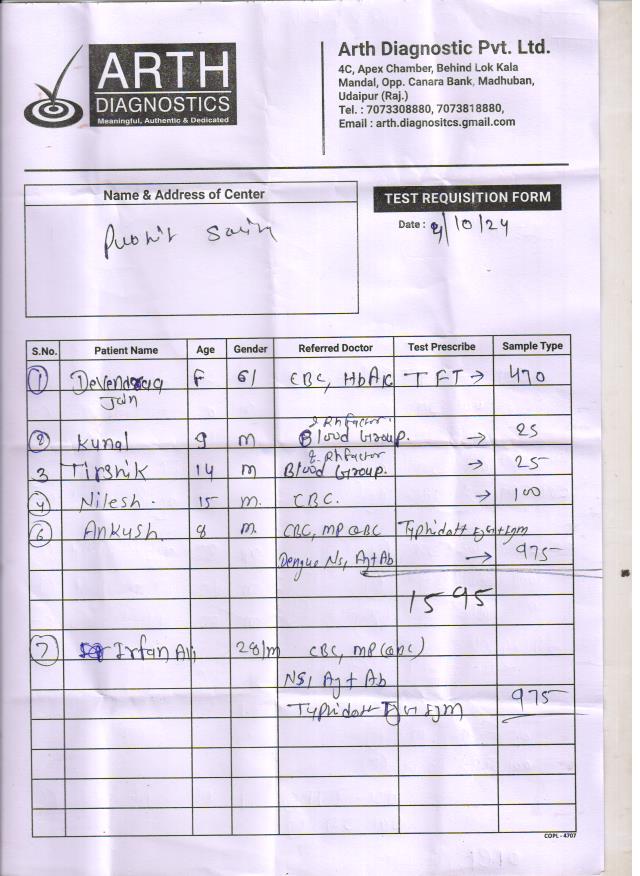 ARTH
DIAGNOSTICS
Meaningful, Authentic & Dedicated
Arth Diagnostic Pvt. Ltd.
4C, Apex Chamber, Behind Lok Kala
Mandal, Opp. Canara Bank, Madhuban,
Udaipur (Raj.)
Tel. : 7073308880, 7073818880,
Email : arth.diagnositcs.gmail.com
Name & Address of Center
TEST REQUISITION FORM
Date : /10/24
S.No. Patient Name Age Gender Referred Doctor Test Prescribe Sample Type
1 Devendra F 61 CBC, HbA1c TFT → 470
Jain
& Rh factor
2 Kunal 9 m Blood Group. → 25
& Rh factor
3 Tirshik 14 m Blood Group. → 25
4 Nilesh. 15 m. CBC. → 100
6 Ankush. 8 m. CBC, MP QBC Typhidott IgG+IgM
Dengue Ns1 Ag+Ab → 975
1595
7 Irfan Ali 28/m CBC, MP (QBC)
NS1 Ag + Ab
Typhidott IgG IgM 975
COPL - 4707